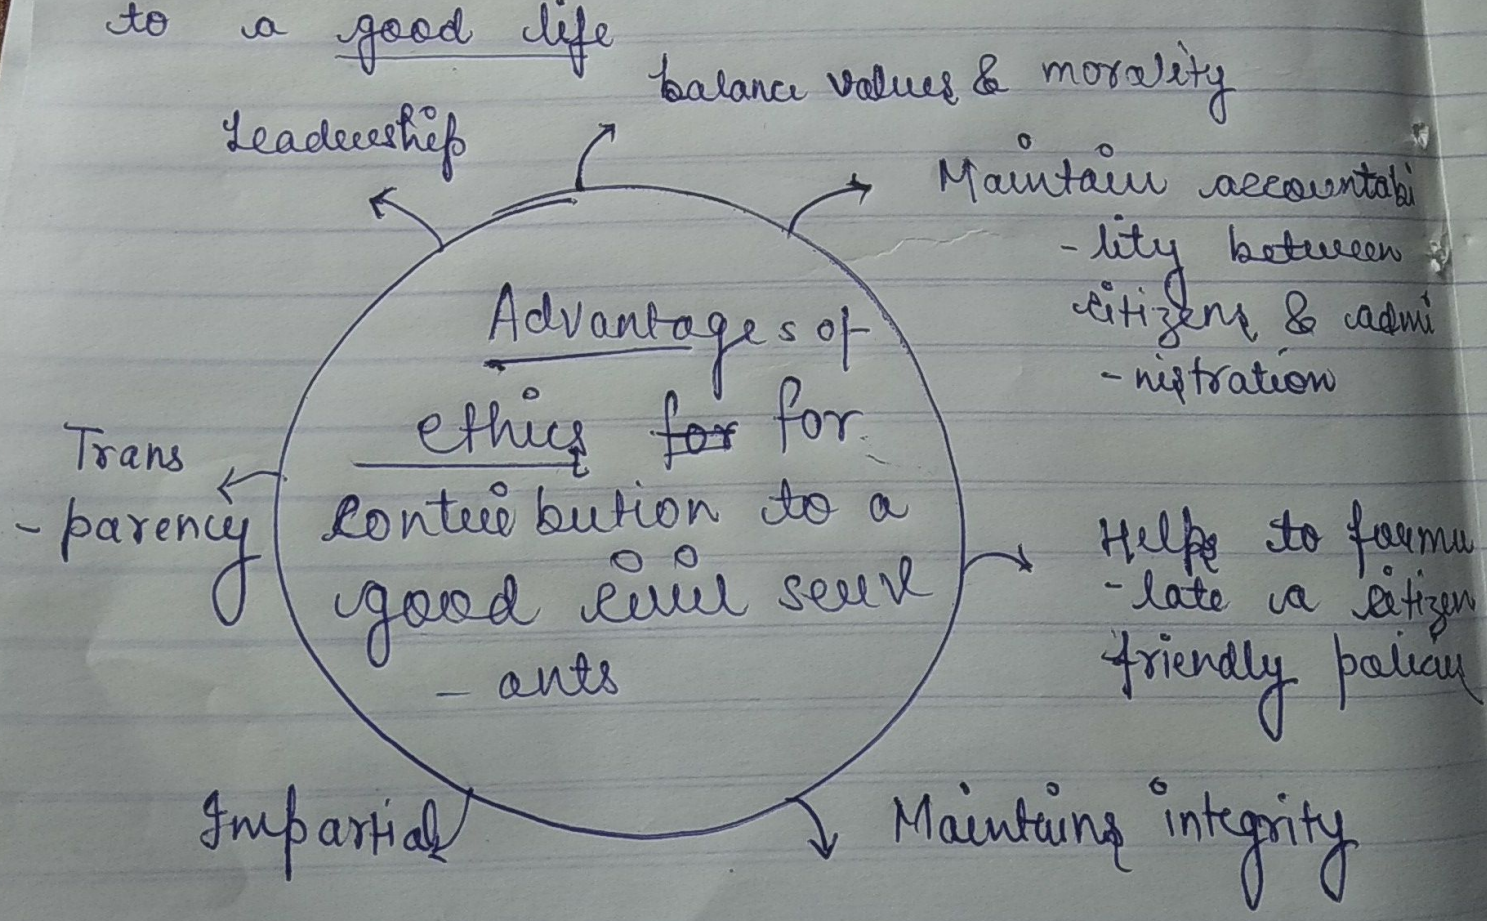 to a good life
balance values & morality
Leadership
Maintain accountabi
- lity between
citizens & admi
- nistration
Advantages of
ethics for for
contribution to a
good civil serv
- ants
Trans
- parency
Helps to formu
- late a citizen
friendly policy
Impartial
Maintains integrity